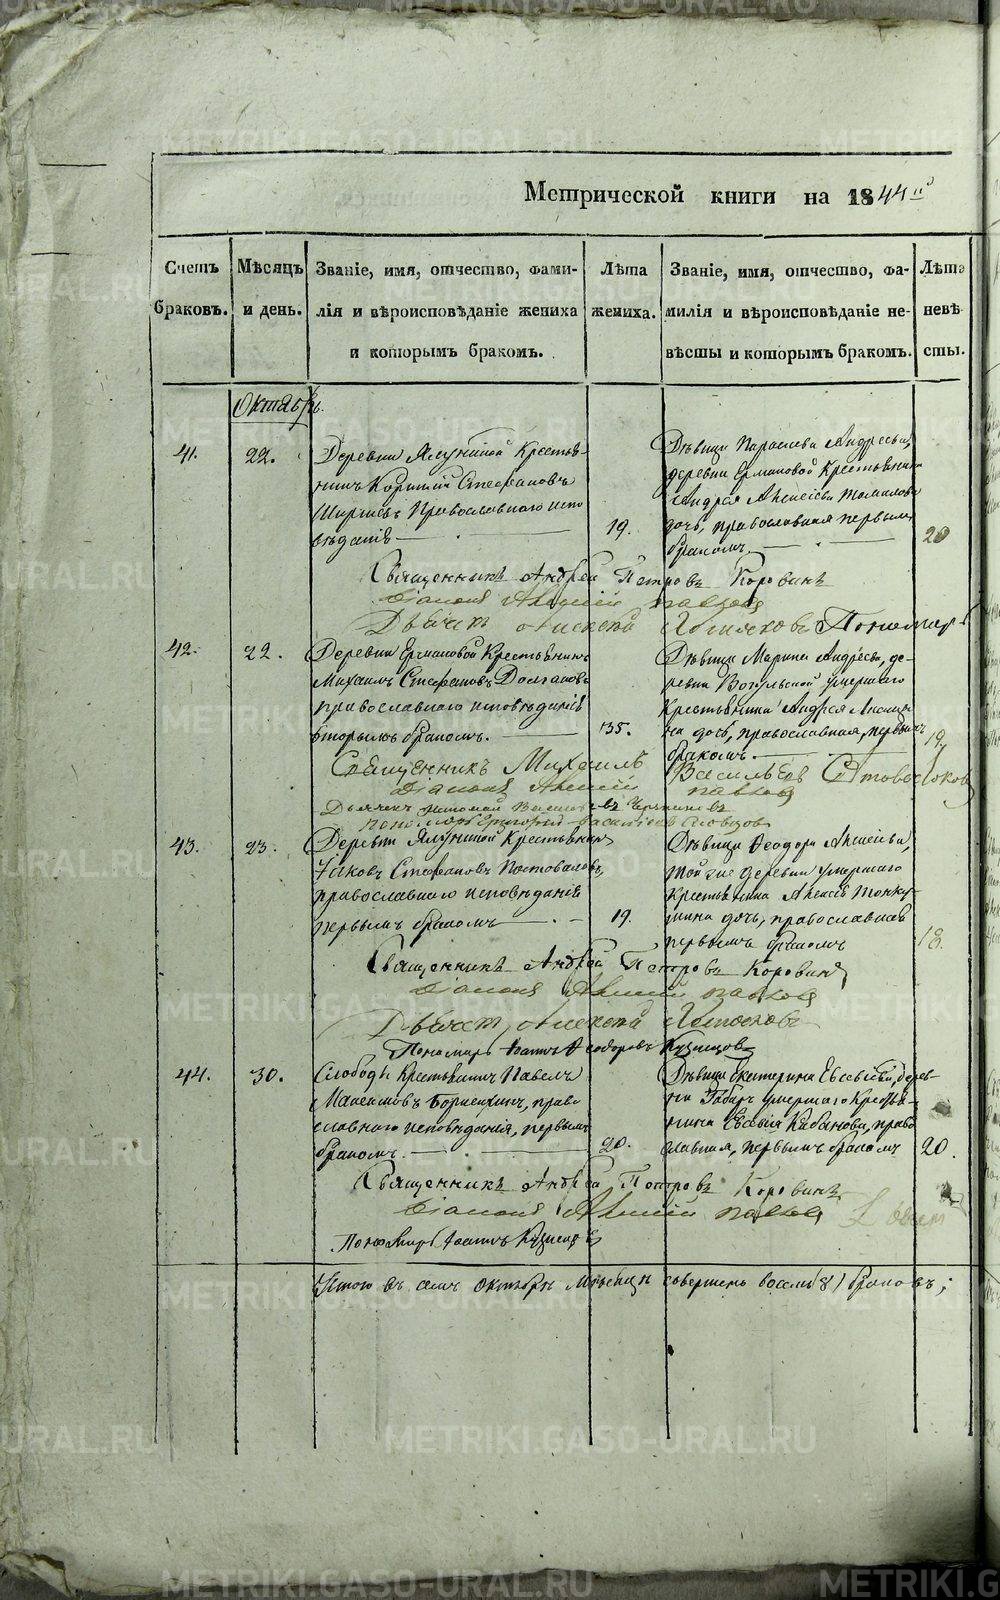 Метрической книги на 1844й
Счетъ браковъ.
Мѣсяцъ и день.
Званіе, имя, отчество, фами-
лія и вѣроисповѣданіе жениха
и которымъ бракомъ.
Лѣта жениха.
Званіе, имя, отчество, фа-
милія и вѣроисповѣданіе не-
вѣсты и которымъ бракомъ.
Лѣта невѣ
сты.
Октябрь.
41.
22.
Деревни Ялуниной Крестья-
нинъ Стефановъ
Православнаго испо
вѣданія
19.
Дѣвица Параскева Андреева,
деревни Ермаковой Крестьянина
Андрея Алексіева
дочь, православная первымъ
бракомъ.
20
Священникъ Андрей Петровъ Коровинъ
Діаконъ Алексій Павловъ
Дьячекъ Алексей Пономарь
42.
22.
Деревни Ермаковой Крестьянинъ
Михаилъ Стефановъ Долгановъ
православнаго исповѣданія
вторымъ бракомъ.
35.
Дѣвица Марина Андреева, де-
ревни Вогульской умершаго
Крестьянина Андрея
на дочь, православная, первымъ
бракомъ.
19
Священникъ Михаилъ Васильевъ Словостоковъ
Діаконъ Алексій Павловъ
Дьячекъ
Пономарь Григорій Васильевъ Словцовъ
43.
23.
Деревни Ялуниной Крестьянинъ
Іаковъ Стефановъ Постоваловъ,
православнаго исповѣданія
первымъ бракомъ
19.
Дѣвица Ѳеодора Алексіева,
той же деревни умершаго
Крестьянина Алексія Тонку-
шина дочь, православная
первымъ бракомъ
18.
Священникъ Андрей Петровъ Коровинъ
Діаконъ Алексій Павловъ
Дьячекъ Алексей
Пономарь Іоаннъ Ѳеодоровъ Кузнецовъ
44.
30.
Слободы Крестьянинъ Павелъ
Максимовъ право
славнаго исповѣданія, первымъ
бракомъ.
20.
Дѣвица Екатерина Евсевіева, дерев-
ни умершаго Крестья-
нина Евсевія Кабанова, право
славная, первымъ бракомъ
20.
Священникъ Андрей Петровъ Коровинъ
Діаконъ Алексій Павловъ
Пономарь Іоаннъ Кузнецовъ
Итого въ семъ Октябрѣ Мѣсяцѣ совершено восемь (8) браковъ;
METRIKI.GASO-URAL.RU